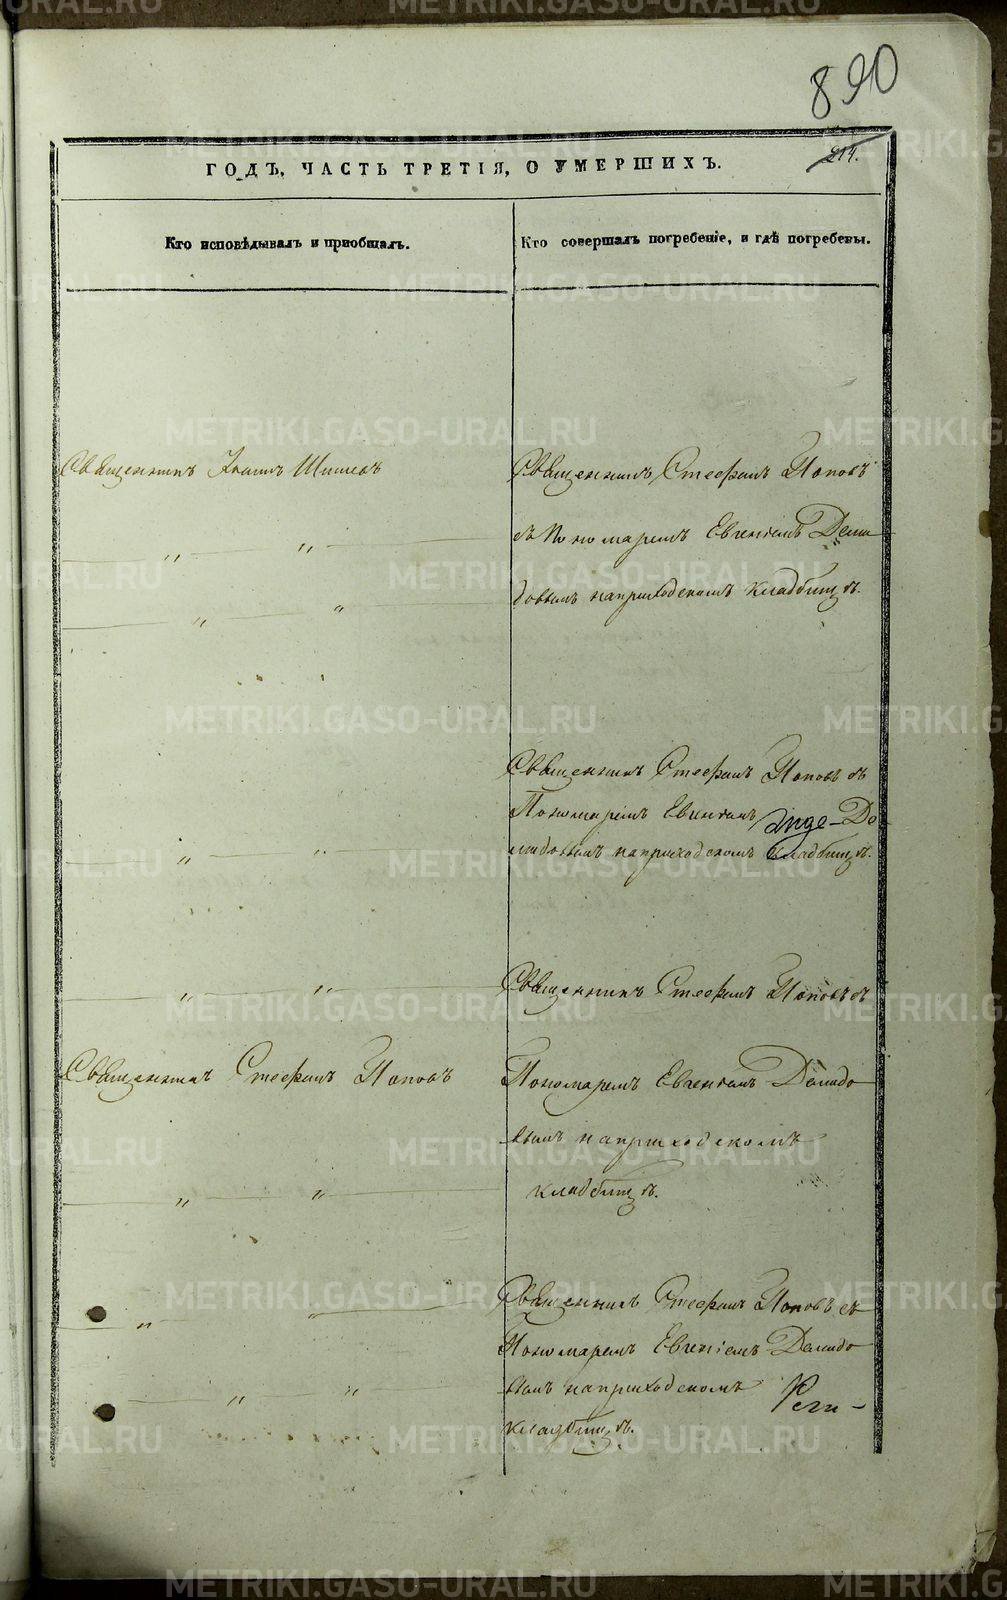 890
214.
ГОДЪ, ЧАСТЬ ТРЕТІЯ, О УМЕРШИХЪ.
Кто исповѣдывалъ и пріобщалъ.
Кто совершалъ погребеніе, и гдѣ погребены.
Священникъ Іоаннъ Шишевъ
Священникъ Стефанъ Поповъ
съ Пономаремъ Евгеніемъ Деми
довымъ наприходскомъ кладбищѣ.
Священникъ Стефанъ Поповъ съ
Пономаремъ Евгеніемъ Де
мидовымъ наприходскомъ кладбищѣ.
Священникъ Стефанъ Поповъ съ
Священникъ Стефанъ Поповъ
Пономаремъ Евгеніемъ Демидо
вымъ наприходскомъ
кладбищѣ.
Священникъ Стефанъ Поповъ съ
Пономаремъ Евгеніемъ Демидо
вымъ наприходскомъ
кладбищѣ.
METRIKI.GASO-URAL.RU